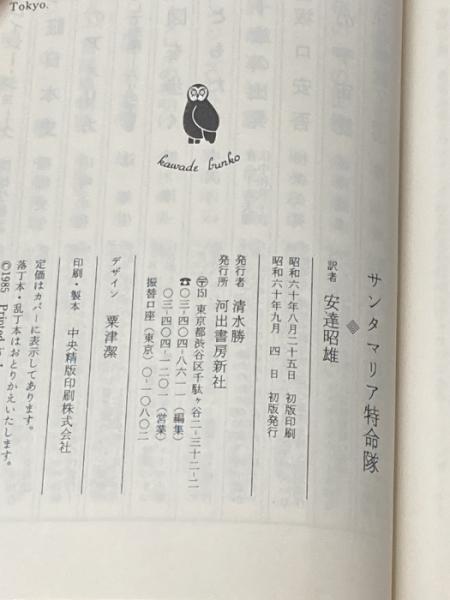 Tokyo.
kawade bunko
サンタマリア特命隊
訳者 安達昭雄
昭和六十年八月二十五日 初版印刷
昭和六十年九月 四 日 初版発行
発行者 清水勝
発行所 河出書房新社
〒151 東京都渋谷区千駄ヶ谷二-三十二-二
☎〇三-四〇四-八六一一(編集)
〇三-四〇四-一二〇一(営業)
振替口座(東京)〇-一〇八〇二
デザイン 粟津潔
印刷・製本 中央精版印刷株式会社
定価はカバーに表示してあります。
落丁本・乱丁本はおとりかえいたします。
©1985 Printed